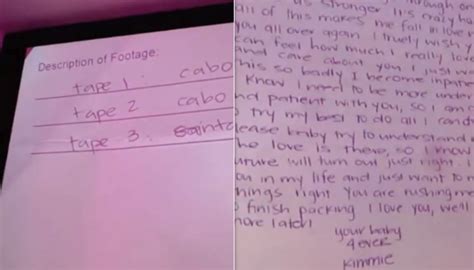 Description of Footage:
tape 1. cabo
tape 2 cabo
tape 3.
is stronger It's crazy
all of this makes me fall in love
you all over again I truely wish
can feel how much I really love
and care about you I just
this so badly I become inpatie
Know I need to be more under
and patient with you, so I am
o try my best to do all I can
lease baby try to understand
he love is there, so I know
uture will turn out just right.
ou in my life and just want to
hings right You are rushing me
o finish packing I love you, we'll
more later!
your baby
4ever
Kimmie